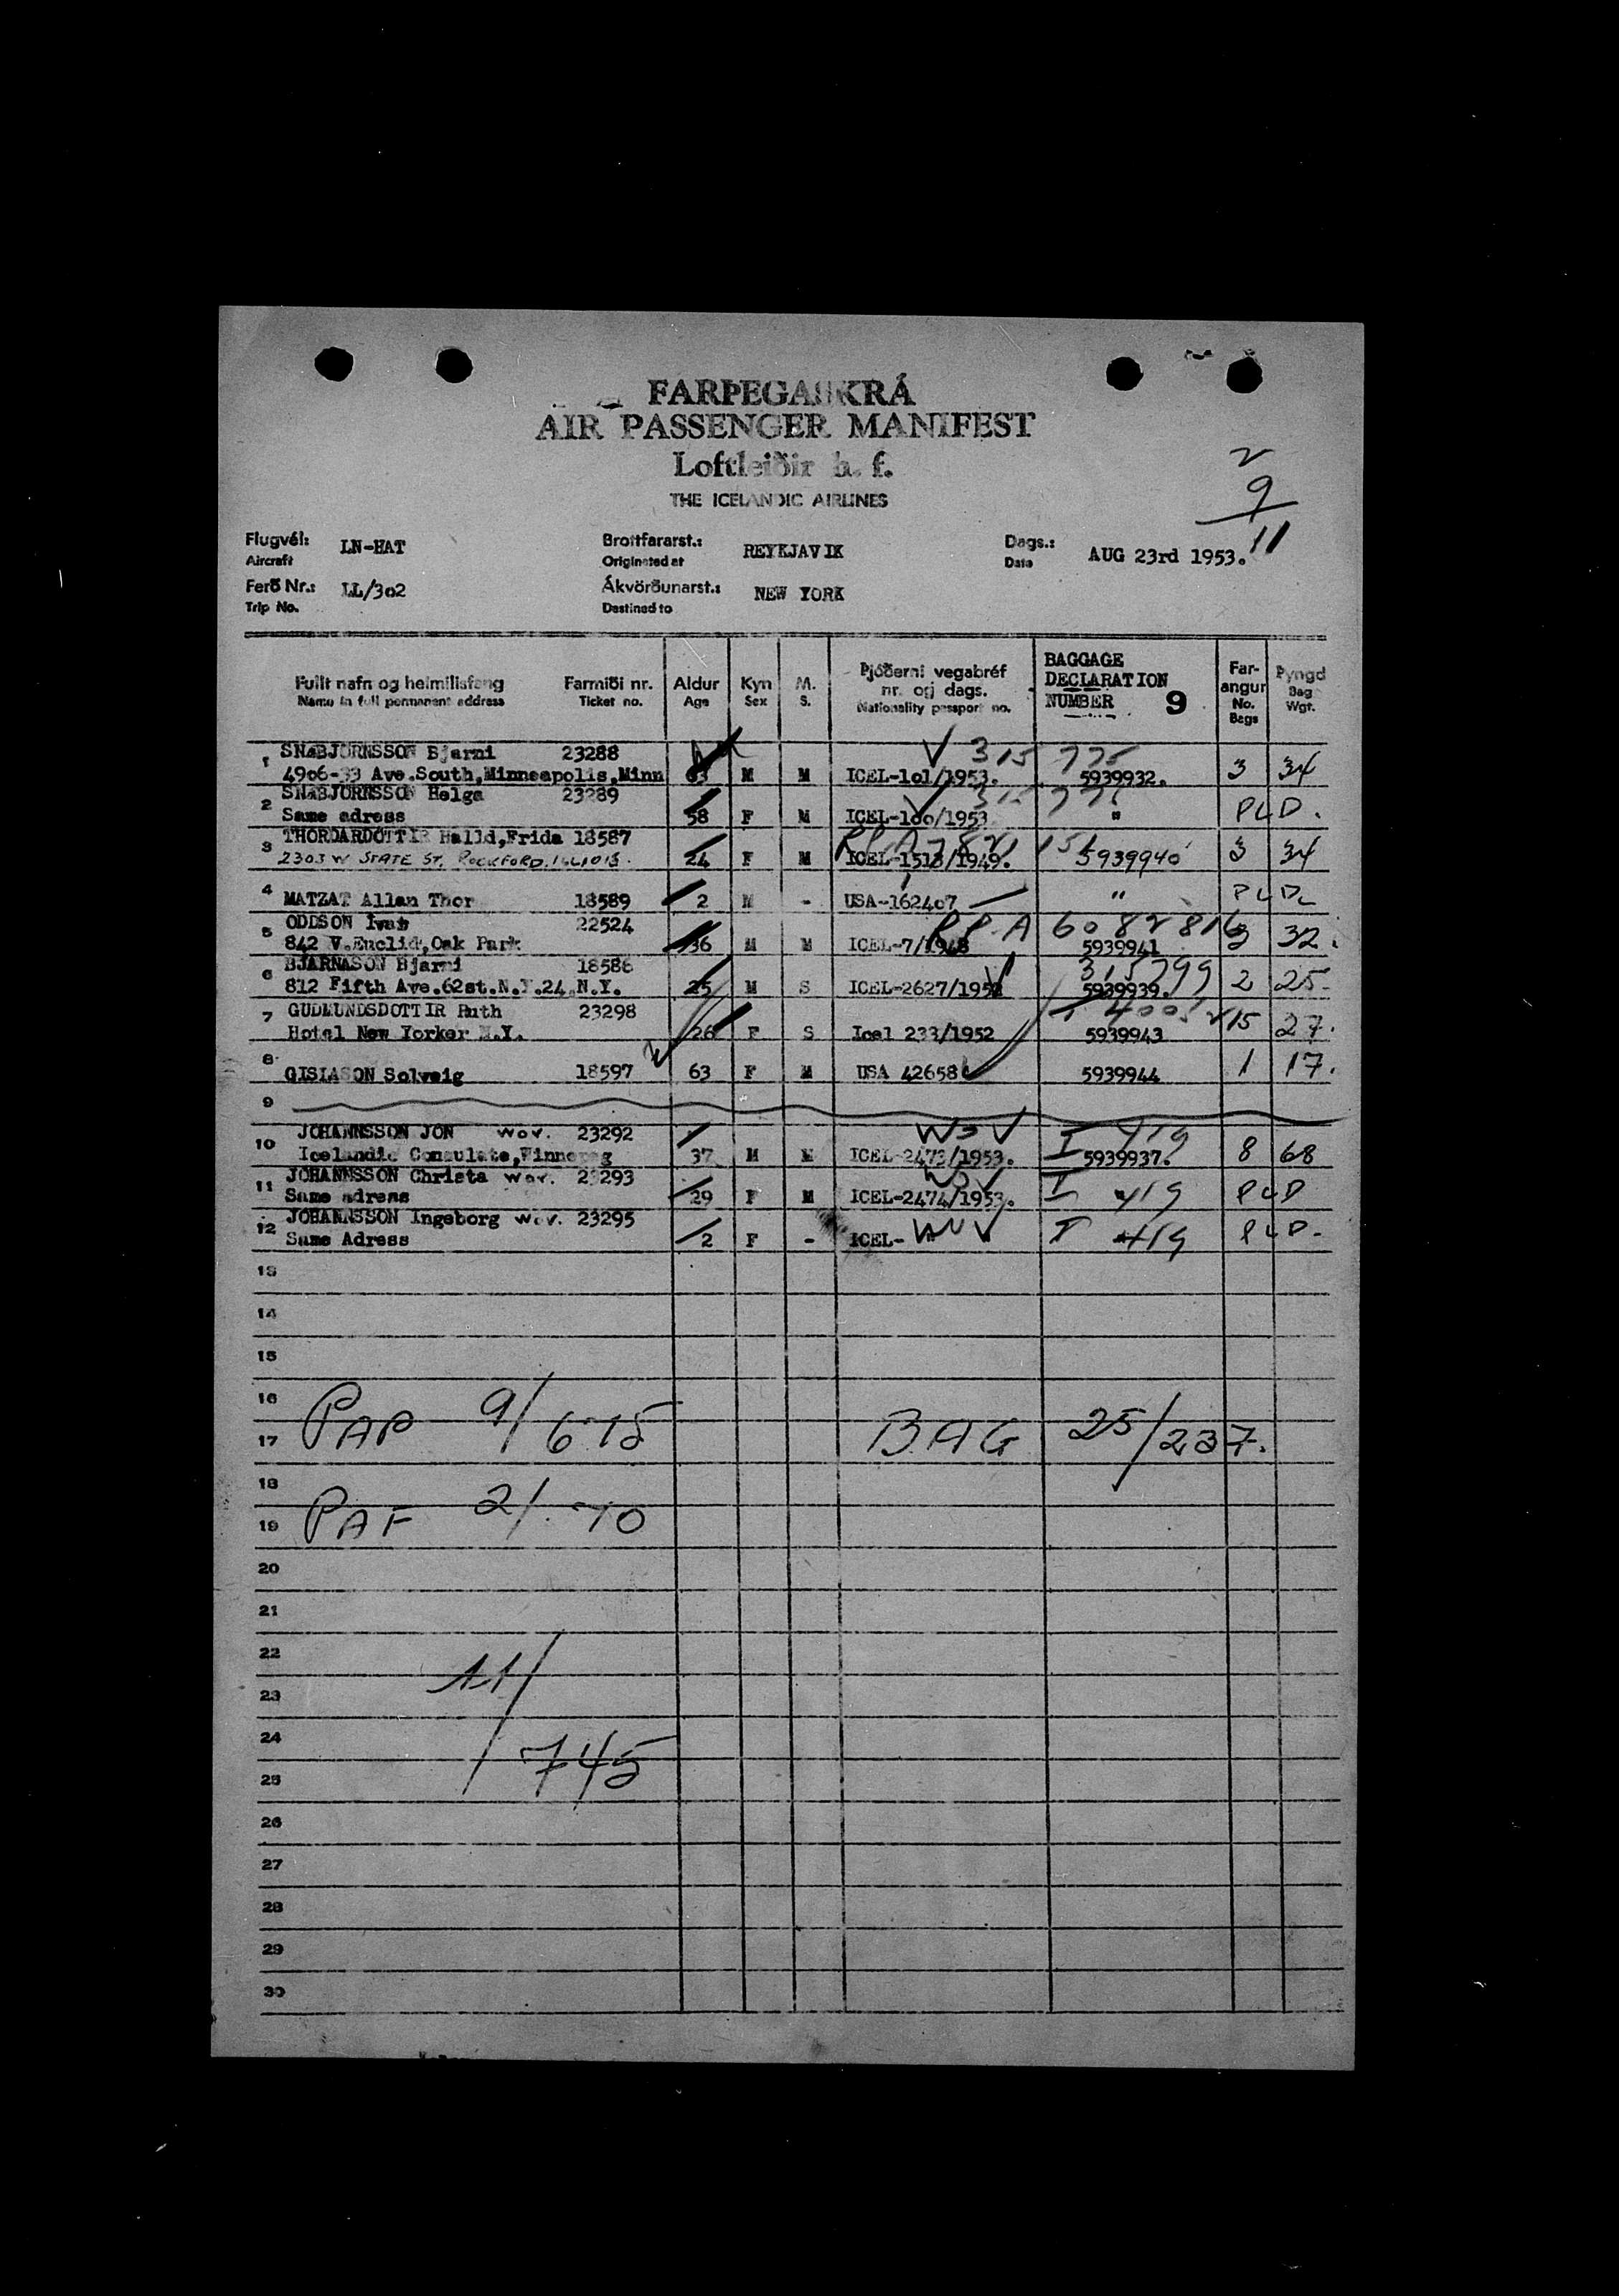 FARÞEGASKRÁ
AIR PASSENGER MANIFEST
Loftleiðir h. f.
THE ICELANDIC AIRLINES
2
9
11
Flugvél: LN-HAT Brottfararst.: REYKJAVIK Dags.: AUG 23rd 1953.
Aircraft Originated at Date
Ferð Nr.: LL/3o2 Ákvörðunarst.: NEW YORK
Trip No. Destined to
Fullt nafn og heimilisfang Farmiði nr. Aldur Kyn M. Þjóðerni vegabréf nr. og dags. BAGGAGE DECLARATION NUMBER 9 Farangur Þyngd
Name in full permanent address Ticket no. Age Sex S. Nationality passport no. No. Bags Bag Wgt.
1 SNæBJORNSSON Bjarni 23288 315 775
49o6-33 Ave.South,Minneapolis,Minn 63 M M ICEL-1o1/1953. 5939932. 3 34
2 SNæBJORNSSON Helga 23289
Same adress 58 F M ICEL-1oo/1953 " PLD.
3 THORDARDOTTIR Halld,Frida 18587
2303 W STATE ST. ROCKFORD. 24 F M ICEL-1518/1949. 5939940 3 34
4 MATZAT Allan Thor 18589 2 M - USA-1624o7 " PLD
5 ODDSON Ivar 22524 R.P. A 6082816
842 V.Euclid,Oak Park 36 M M ICEL-7/1948 5939941 3 32.
6 BJARNASON Bjarni 18586 315799
812 Fifth Ave.62st.N.Y.24.N.Y. 25 M S ICEL-2627/1952 5939939. 2 25-
7 GUDMUNDSDOTTIR Ruth 23298
Hotel New Yorker N.Y. 26 F S Icel 233/1952 5939943 5 27.
8 GISLASON Solveig 18597 63 F M USA 42658 5939944 1 17.
9
10 JOHANNSSON JON wov. 23292 WOV I 419
Icelandic Consulate,Winnepeg 37 M M ICEL-2473/1953. 5939937. 8 68
11 JOHANNSSON Christa wov. 23293 WOV
Same adress 29 F M ICEL-2474/1953. I 419 PLD
12 JOHANNSSON Ingeborg wov. 23295
Same Adress 2 F - ICEL- " I 419 PLD-
13
14
15
16
17 PAP 9/675 BAG 25/237.
18
19 PAF 2/170
20
21
22
23 11/
24 745
25
26
27
28
29
30